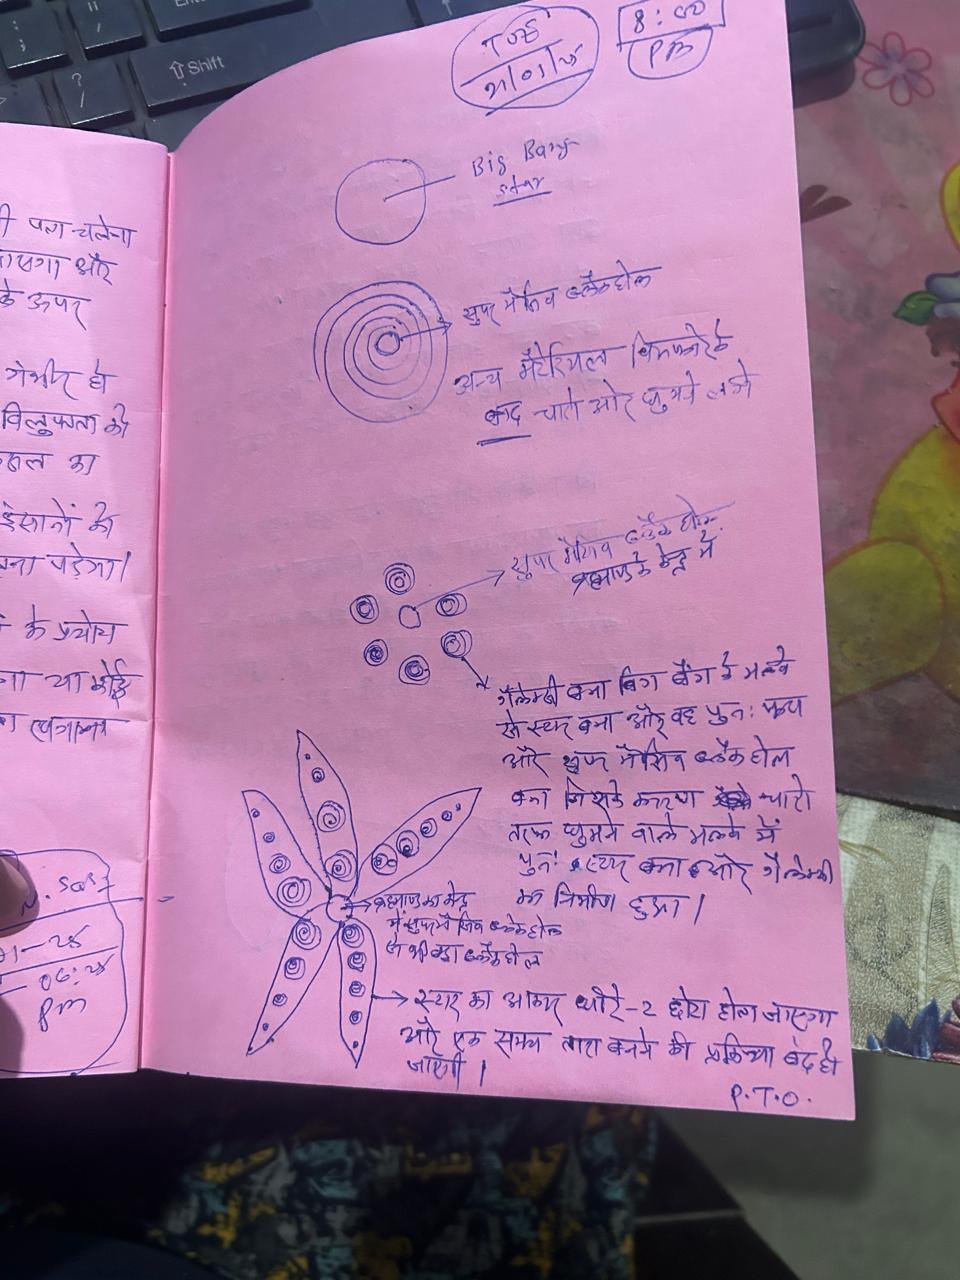 Shift
? /
TUE
8:00
PM
Big Bang
star
सुपर मैसिव ब्लैकहोल
अन्य मैटेरियल
बाद चारो ओर घुमने लगे
सुपर मैसिव ब्लैक होल
ब्रह्माण्ड के केन्द्र में
गैलेक्सी बना बिग बैंग के मलवे
से स्टार बना और वह पुनः फटा
और सुपर मैसिव ब्लैक होल
बना जिसके कारण चारो
तरफ घुमने वाले मलवे में
पुनः स्टार बना और गैलेक्सी
का निर्माण हुआ।
ब्रह्माण्ड का केन्द्र
में सुपर मैसिव ब्लैकहोल
से भी बड़ा ब्लैकहोल
स्टार का आकार धीरे-2 छोटा होता जाएगा
और एक समय तारा बनने की प्रक्रिया बंद हो
जाएगी।
P.T.O.
पता चलेगा
और
के ऊपर
गंभीर हो
विलुप्तता की
का
इंसानों को
पड़ेगा।
के प्रयोग
या कोई
06:28
pm